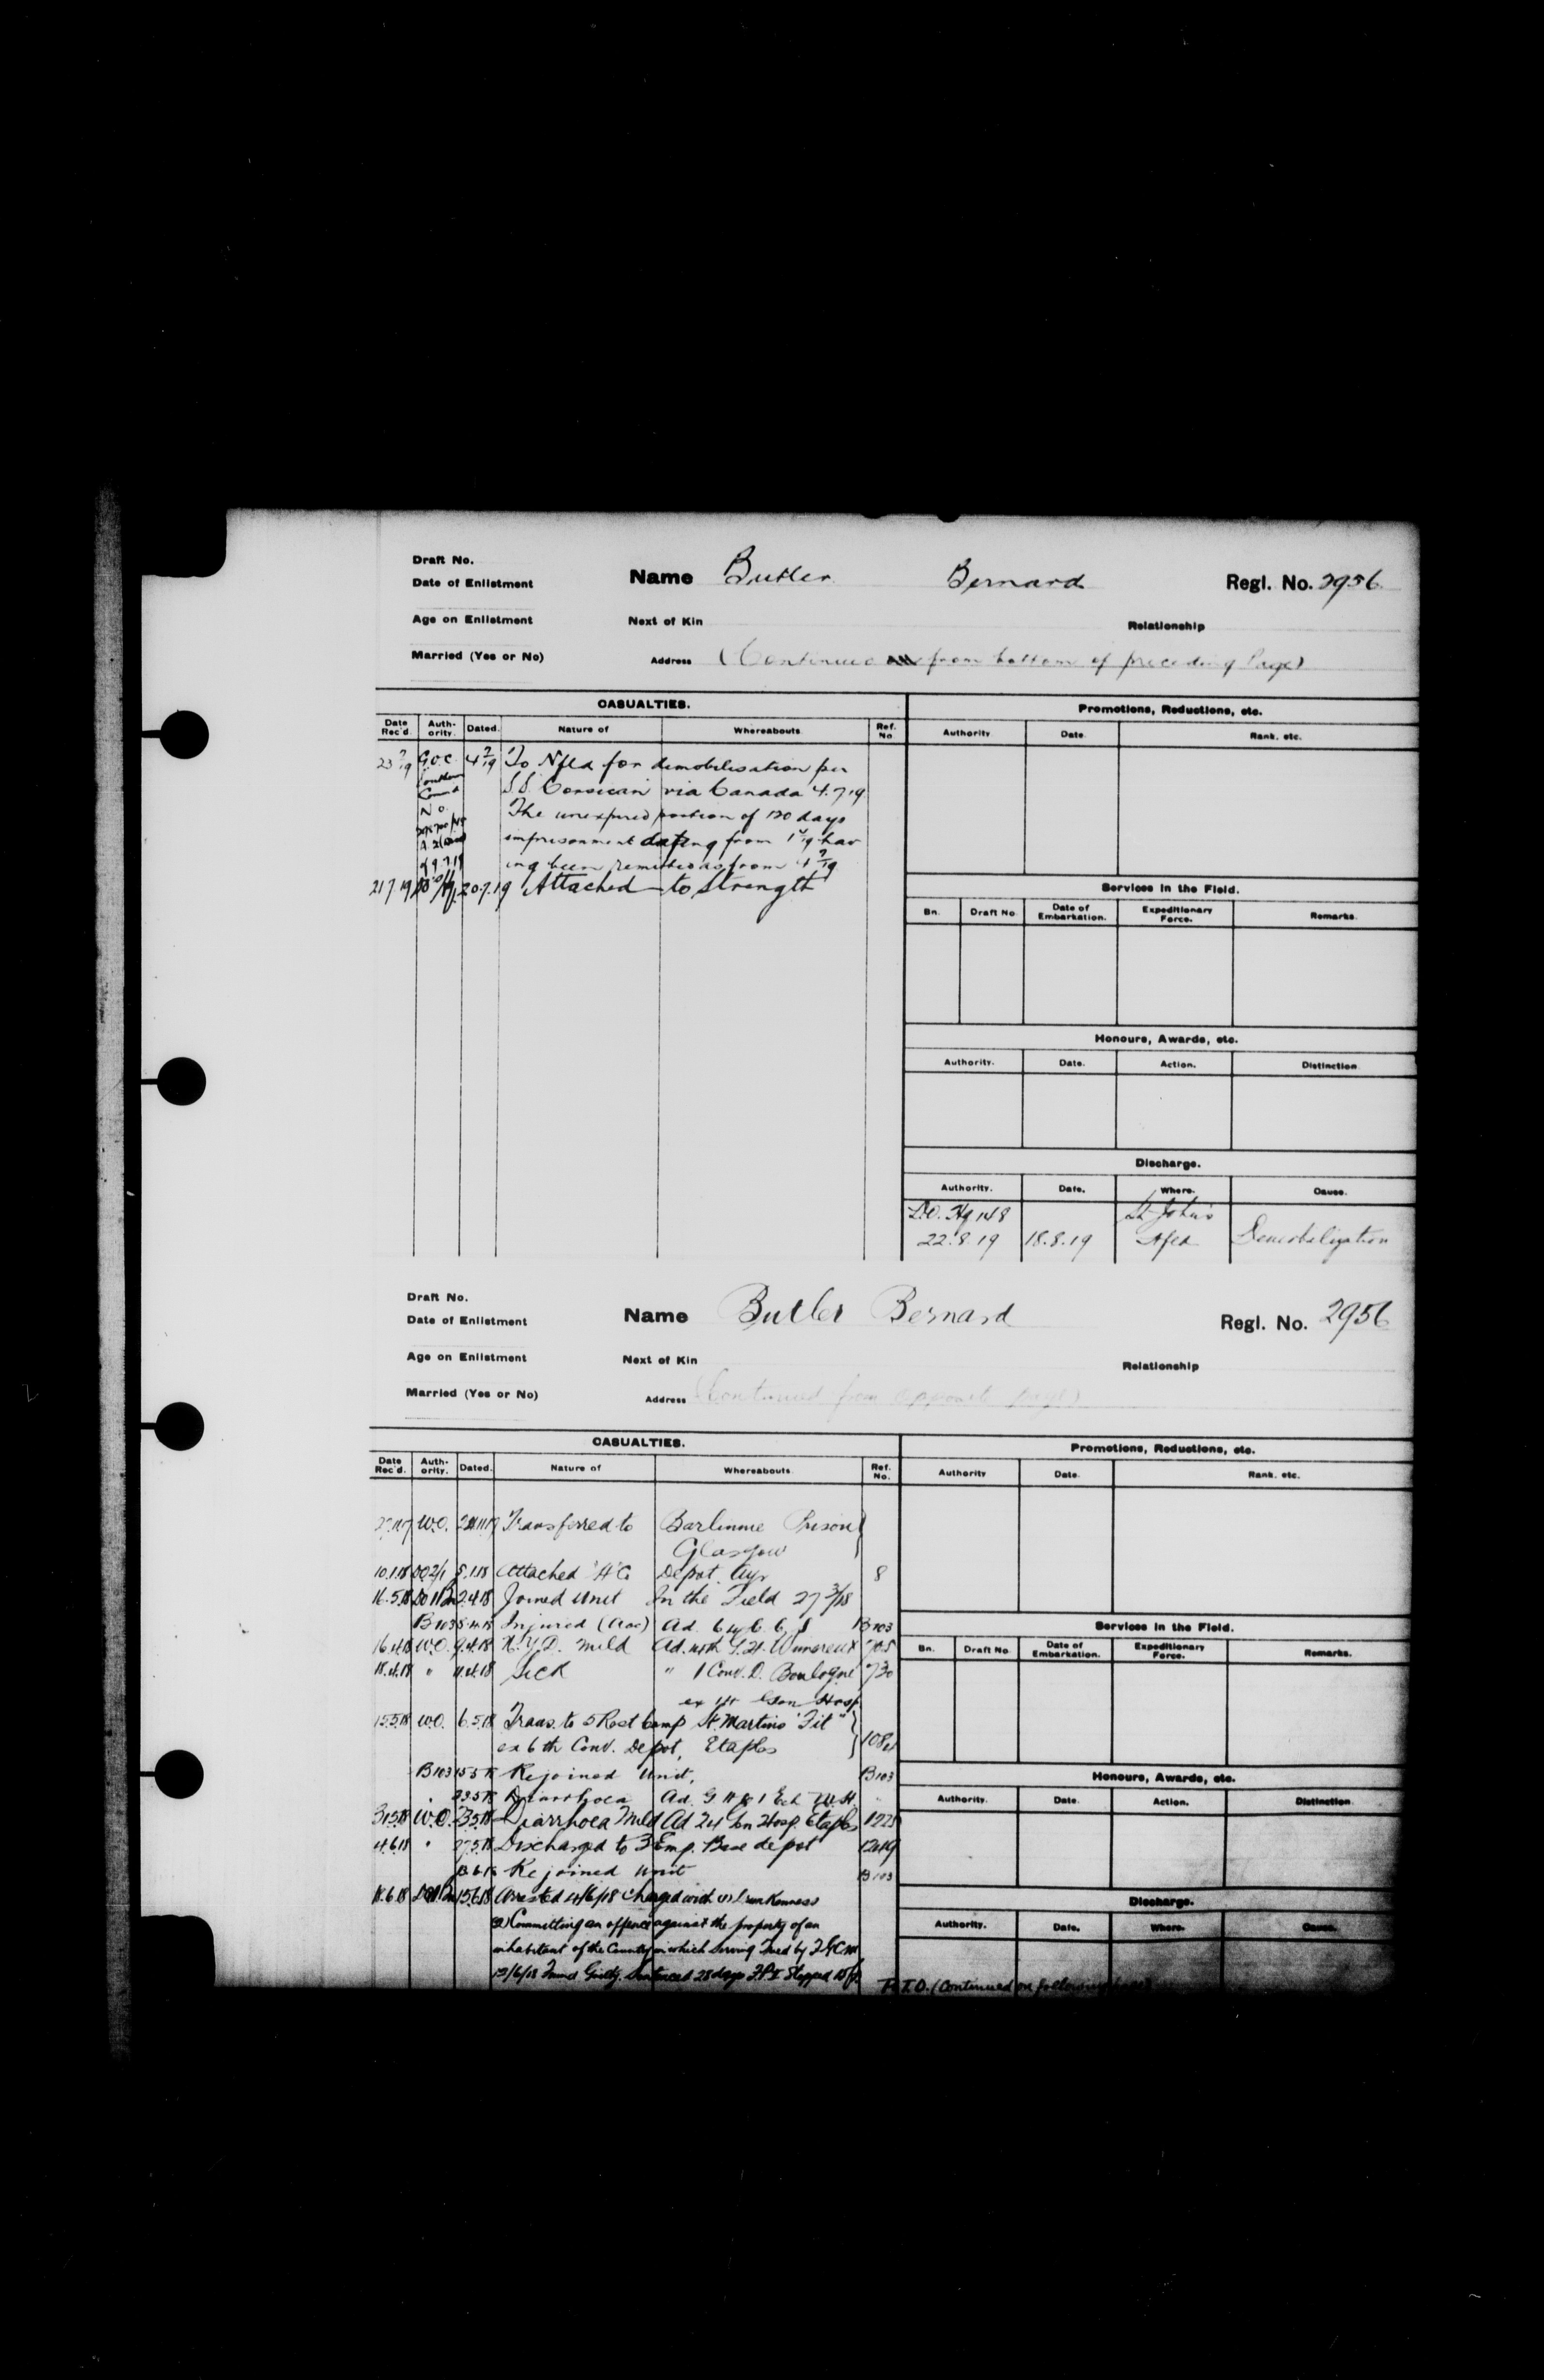 Draft No.
Date of Enlistment
Name Butler Bernard
Regl. No. 2956
Age on Enlistment
Next of Kin
Relationship
Married (Yes or No)
Address (Continued from bottom of preceding Page)
CASUALTIES.
Promotions, Reductions, etc.
Date Rec'd. Auth-ority. Dated. Nature of Whereabouts Ref. No
Authority Date. Rank. etc.
G.O.C. To Nfld for demobilisation per
S.S. Corsican via Canada 4.7.19
No. The unexpired portion of 120 days
imprisonment dating from hav
ing been remitted as from
21 7 19 20.7.19 Attached to Strength
Services in the Field.
Bn. Draft No. Date of Embarkation. Expeditionary Force. Remarks.
Honours, Awards, etc.
Authority. Date. Action. Distinction
Discharge.
Authority. Date. Where. Cause.
D.O. Hq 148 St John's
22.8.19 18.8.19 Nfld Demobilization
Draft No.
Date of Enlistment
Name Butler Bernard
Regl. No. 2956
Age on Enlistment
Next of Kin
Relationship
Married (Yes or No)
Address (Continued from opposite page)
CASUALTIES.
Promotions, Reductions, etc.
Date Rec'd. Auth-ority. Dated. Nature of Whereabouts. Ref. No.
Authority Date. Rank. etc.
W.O. Transferred to Barlinnie Prison
Glasgow
10.1.18 5.1.18 Attached 'H' Co Depot. Ayr 8
16.5.18 2.4.18 Joined Unit In the Field 27 3/18
B103 Injured (Acc) Ad. B103
16.4.18 W.O. 9.4.18 N.Y.D. mild Ad. G.H. Wimereux 705
18.4.18 " 11.4.18 Sick " 1 Conv. D. Boulogne 730
ex Gen Hosp
15.5.18 W.O. 6.5.18 Trans. to 5 Rest Camp St. Martins "Fit"
ex 6th Conv. Depot, Etaples
B103 15.5.18 Rejoined Unit, B103
23.5.18 Diarrhoea Ad.
31.5.18 W.O. 23.5.18 Diarrhoea Mild Ad 24 Gen Hosp. Etaples
4.6.18 " 27.5.18 Discharged to 3 Emp. Base depot
Rejoined Unit B103
18.6.18 15.6.18 Arrested 4/6/18 Charged with (1) Drunkenness
(2) Committing an offence against the property of an
inhabitant of the Country in which serving Tried by F.G.C.M
Found Guilty. Sentenced 28 days F.P.I. Stopped
Services in the Field.
Bn. Draft No. Date of Embarkation. Expeditionary Force. Remarks.
Honours, Awards, etc.
Authority. Date. Action. Distinction
Discharge.
Authority. Date. Where. Cause.
P.T.O. (Continued on following page)